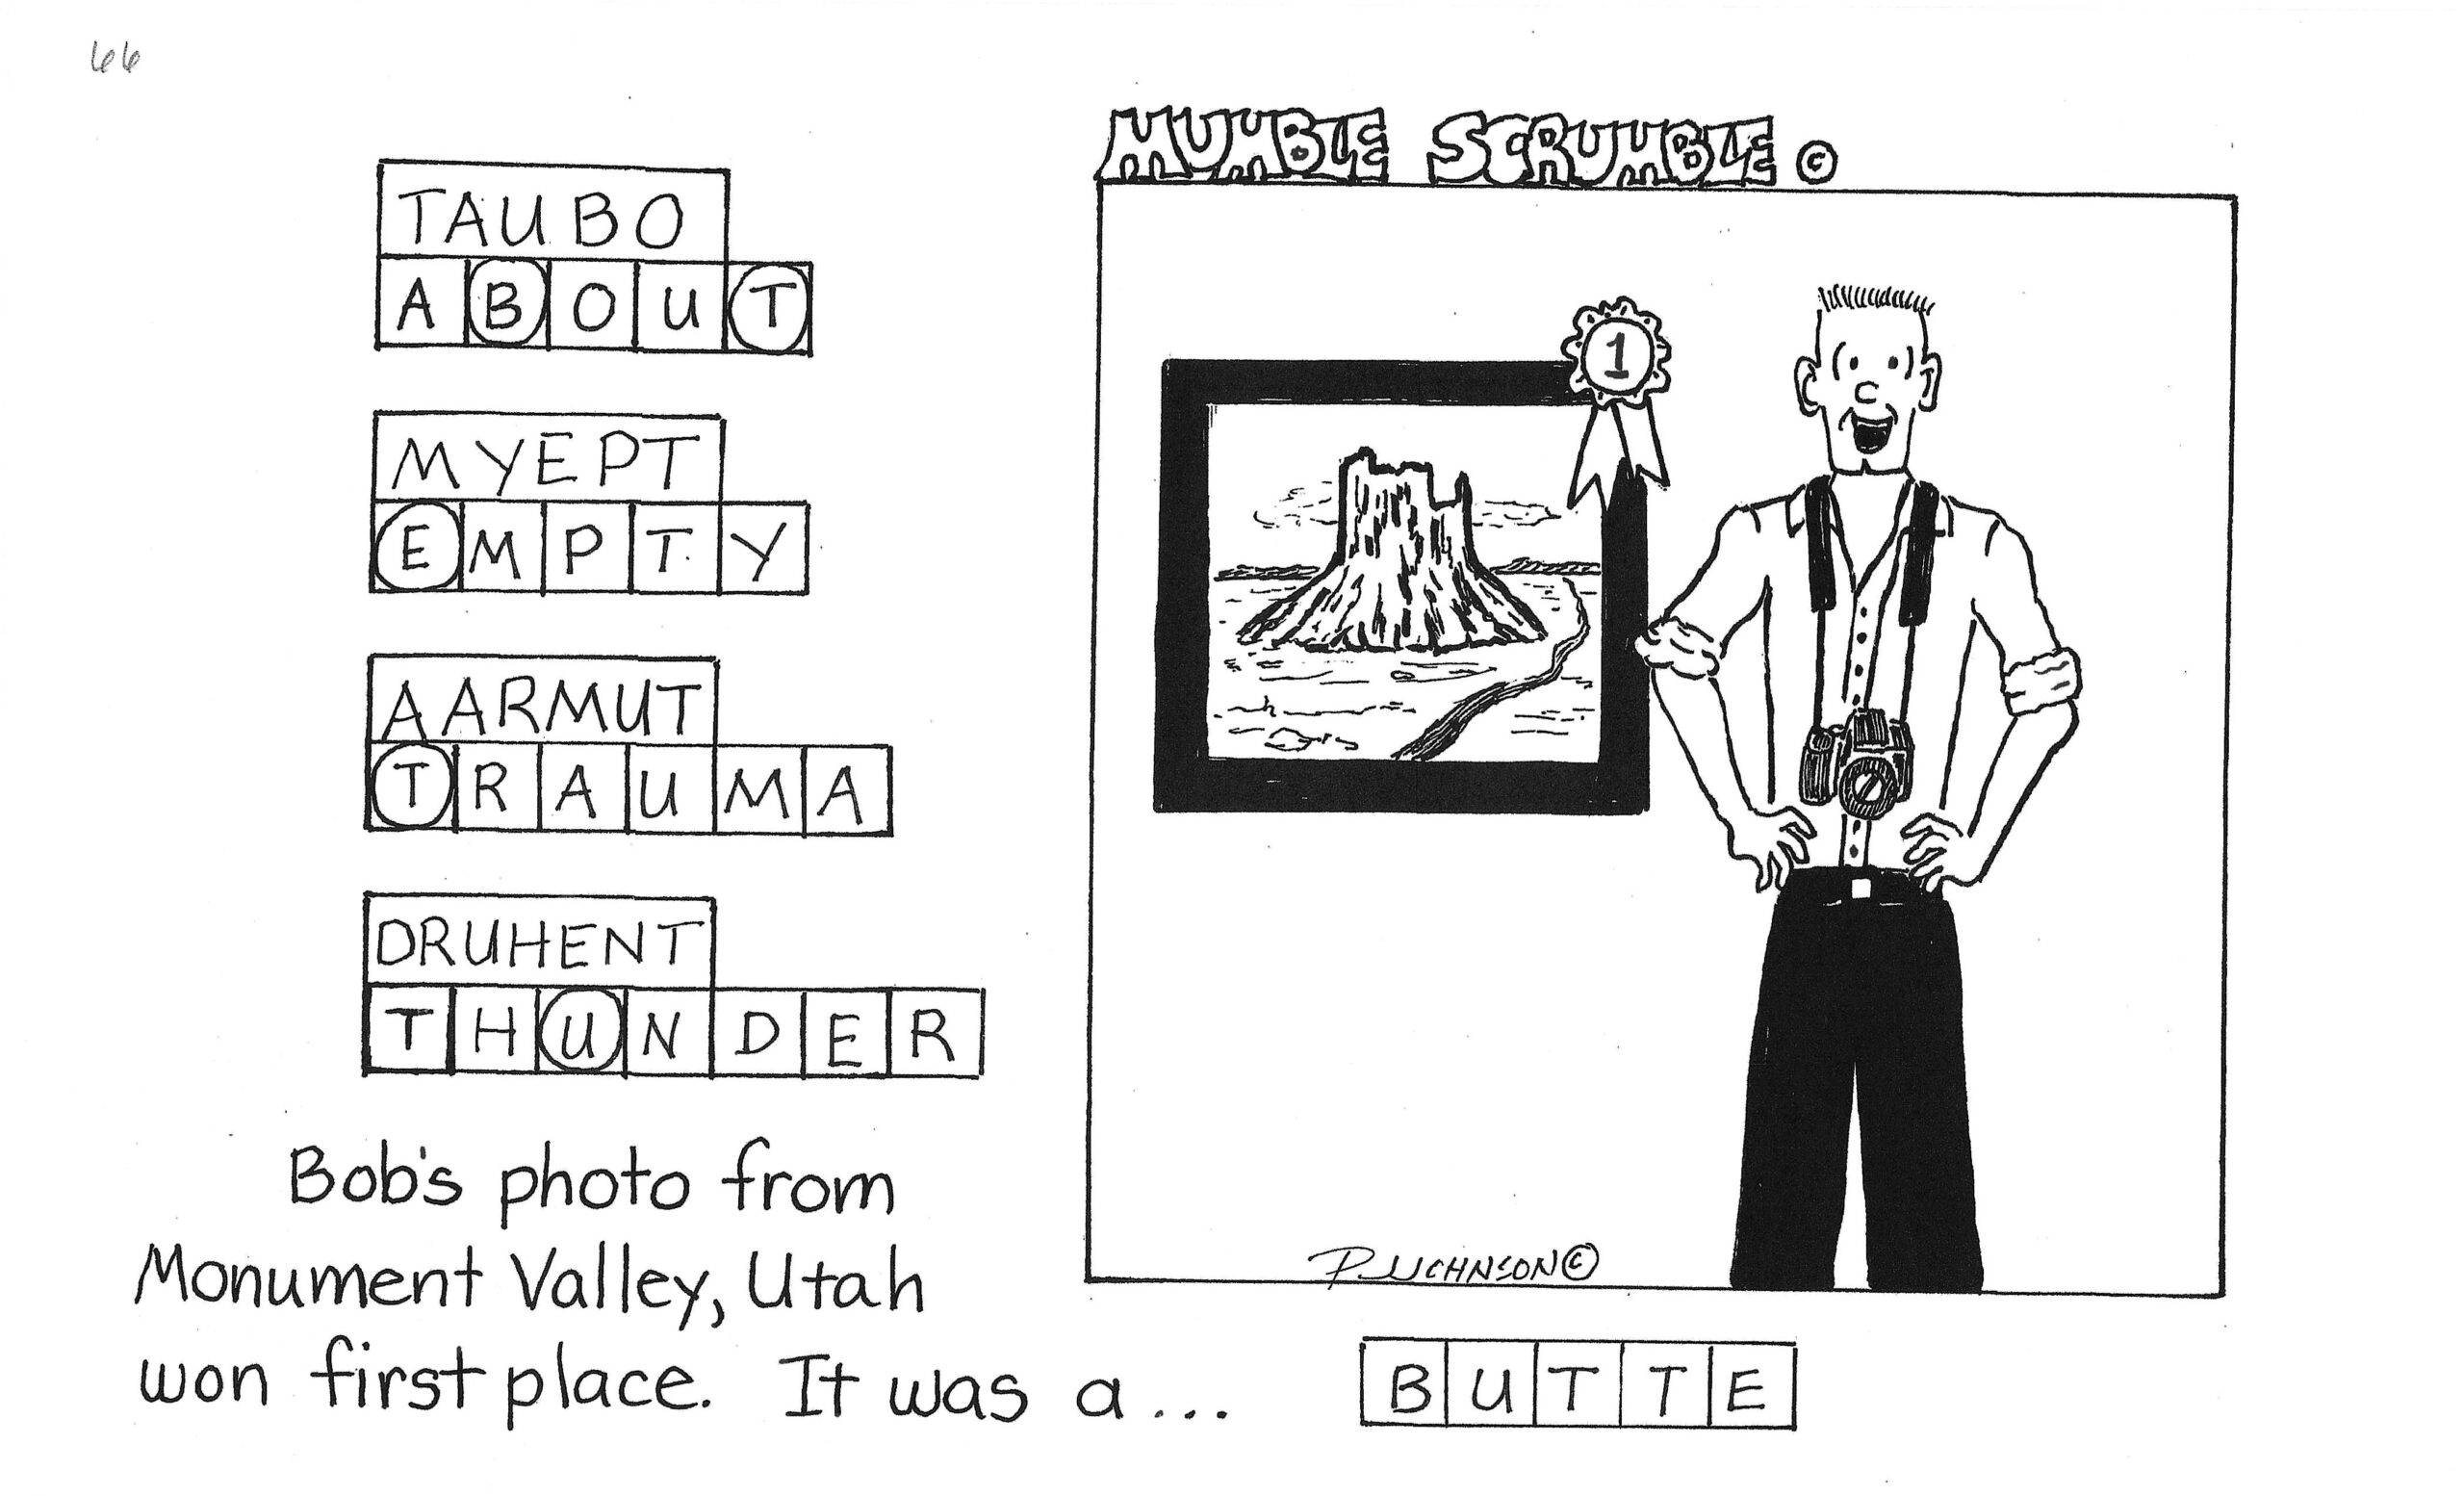 66
MUMBLE SCRUMBLE ©
TAUBO
ABOUT
MYEPT
EMPTY
AARMUT
TRAUMA
DRUHENT
THUNDER
1
Bob's photo from
Monument Valley, Utah
won first place. It was a...
BUTTE
P JJOHNSON ©